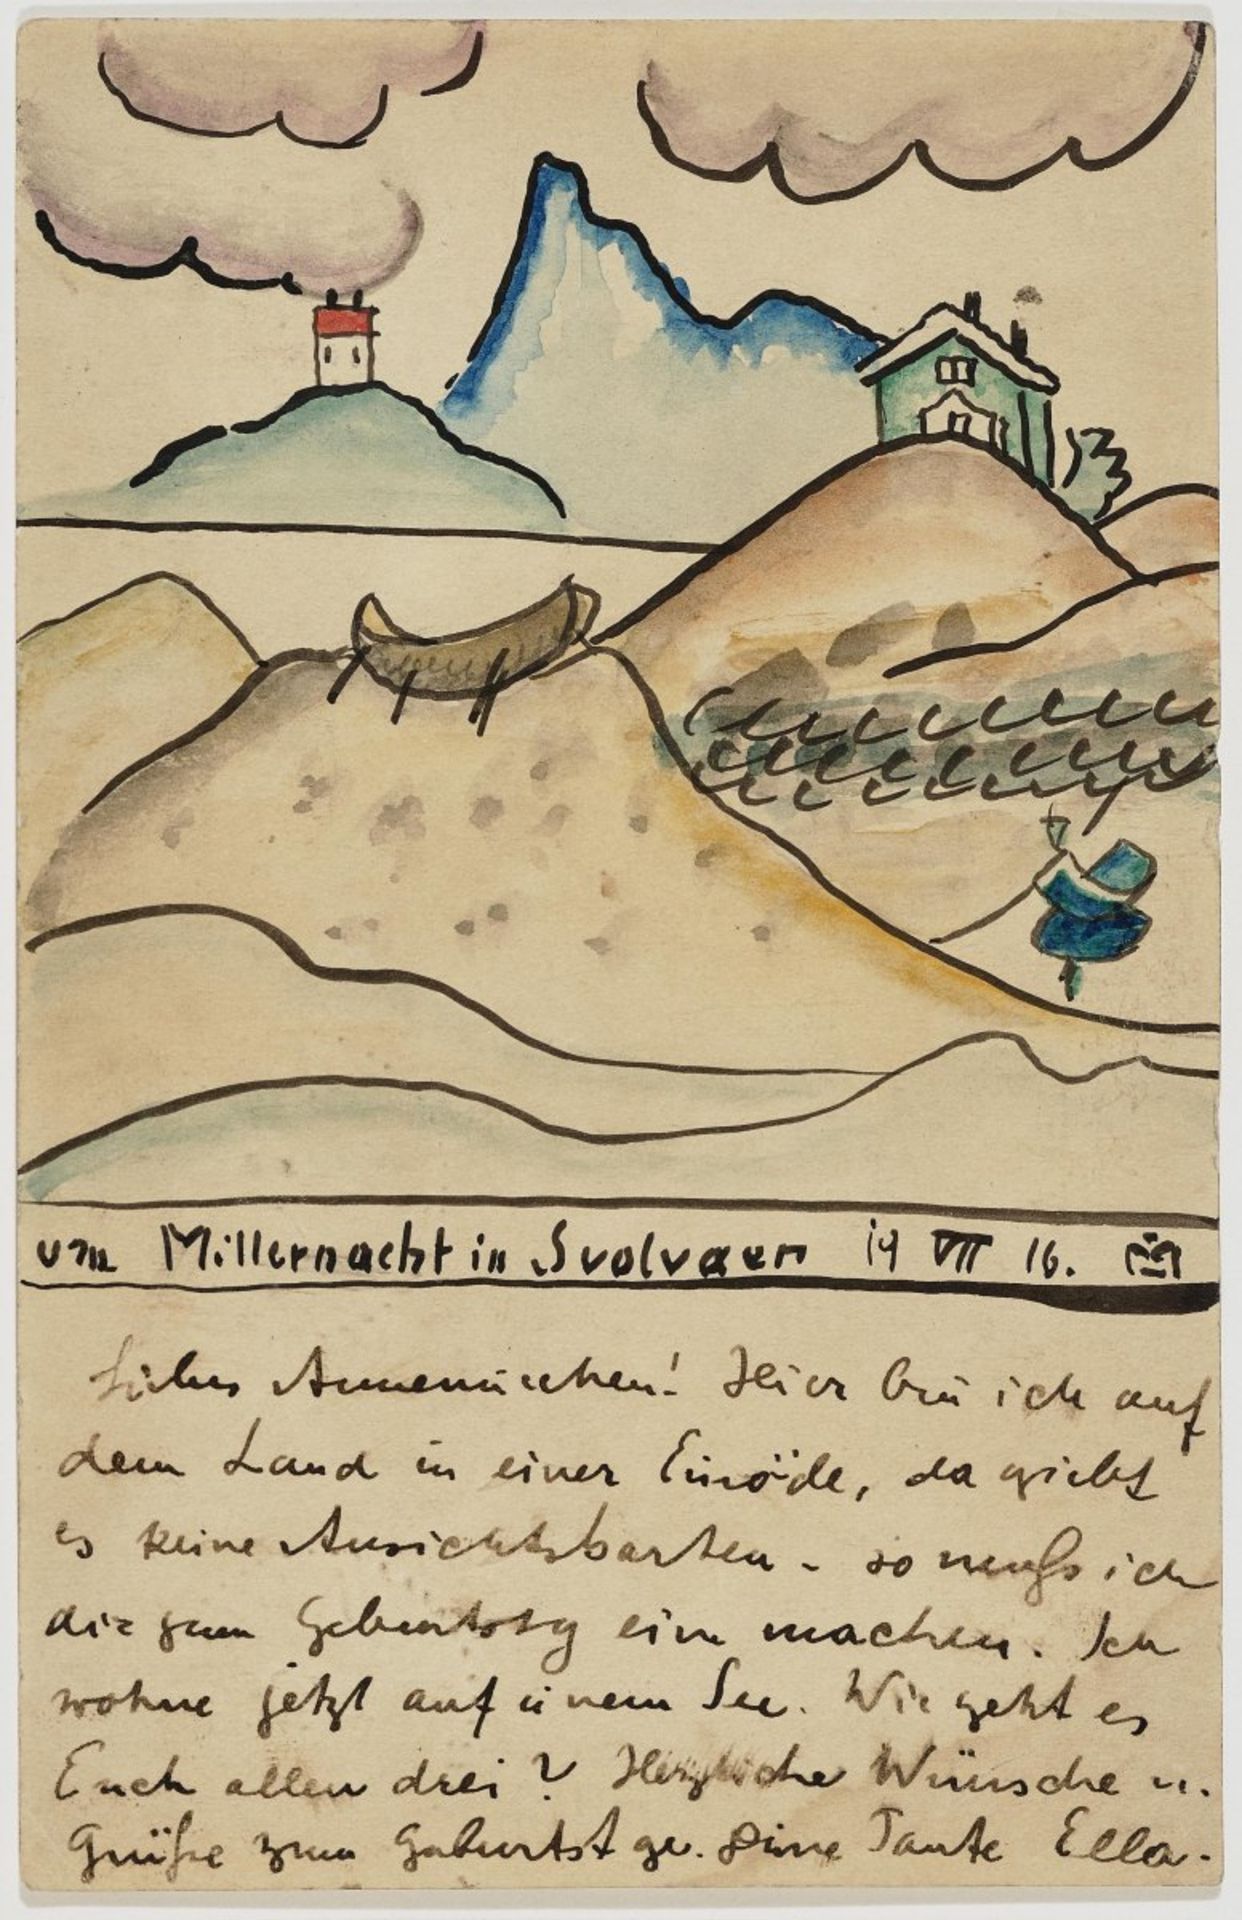 um Mitternacht in Svolvaer 19 VII 16.
Liebes Annemiechen! Hier bin ich auf
dem Land in einer Einöde, da giebt
es keine Ansichtskarten - so muß ich
dir zum Geburtstg eine machen. Ich
wohne jetzt auf einem See. Wie geht es
Euch allen drei? Herzliche Wünsche u.
Grüße zum Geburtstge. Deine Tante Ella.